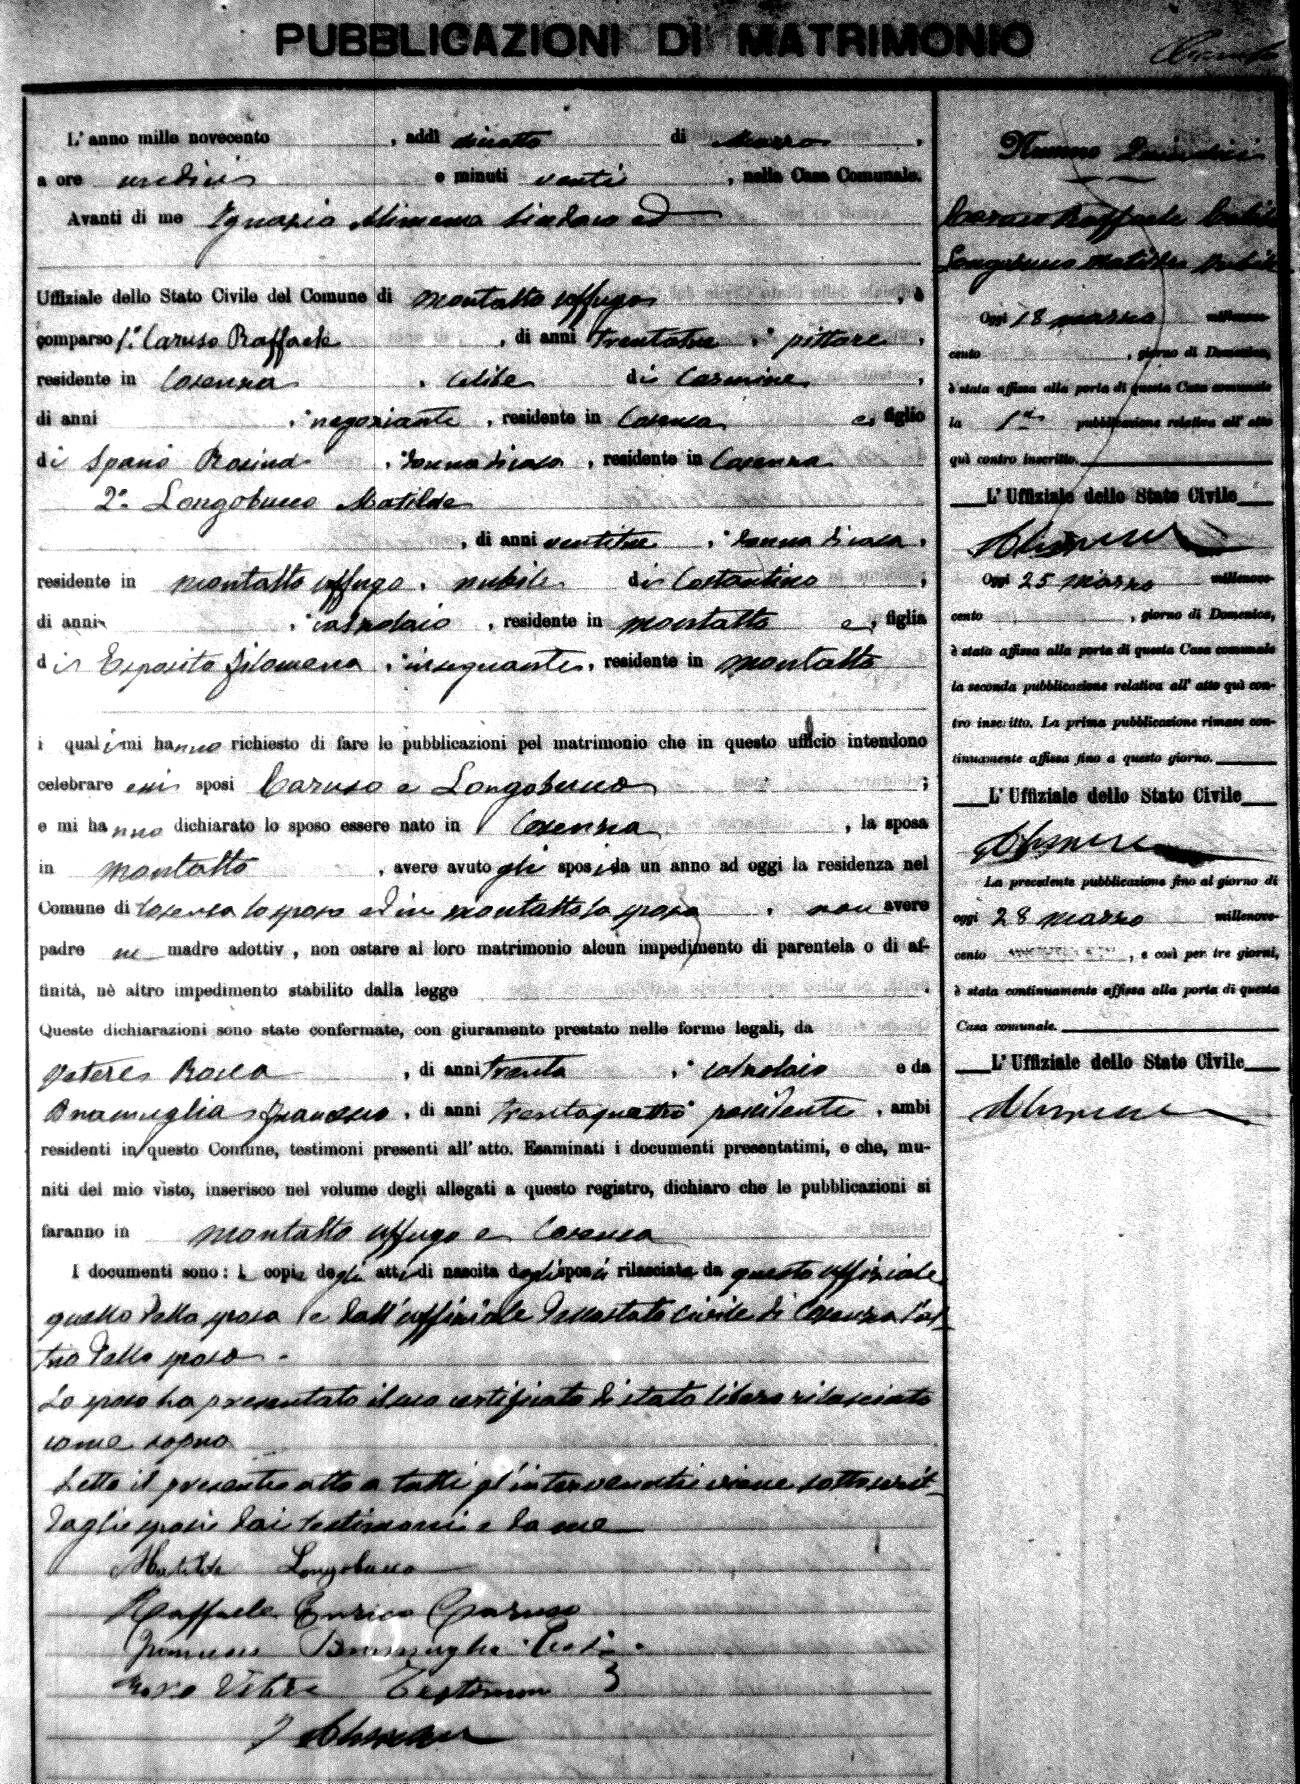 PUBBLICAZIONI DI MATRIMONIO
L'anno mille novecento , addì diciotto di Marzo ,
a ore undici e minuti venti , nella Casa Comunale.
Avanti di me Ignazio Alimena Sindaco ed
Uffiziale dello Stato Civile del Comune di Montalto Uffugo , è
comparso 1.° Caruso Raffaele , di anni trentatre , pittore ,
residente in Cosenza , celibe di Carmine ,
di anni , negoziante , residente in Cosenza e figlio
di Spanò Rosina , donna di casa , residente in Cosenza
2.° Longobucco Matilde
, di anni ventitre , donna di casa ,
residente in Montalto Uffugo , nubile di Costantino ,
di anni , calzolaio , residente in Montalto e figlia
di Esposito Filomena , insegnante , residente in Montalto
i quali mi hanno richiesto di fare le pubblicazioni pel matrimonio che in questo ufficio intendono
celebrare essi sposi Caruso e Longobucco ;
e mi hanno dichiarato lo sposo essere nato in Cosenza , la sposa
in Montalto , avere avuto gli sposi da un anno ad oggi la residenza nel
Comune di Cosenza lo sposo ed in Montalto la sposa , non avere
padre ne madre adottiv , non ostare al loro matrimonio alcun impedimento di parentela o di af-
finità, nè altro impedimento stabilito dalla legge
Queste dichiarazioni sono state confermate, con giuramento prestato nelle forme legali, da
Vetere Rocco , di anni trenta , calzolaio e da
Bramuglia Francesco , di anni trentaquattro possidente , ambi
residenti in questo Comune, testimoni presenti all'atto. Esaminati i documenti presentatimi, e che, mu-
niti del mio visto, inserisco nel volume degli allegati a questo registro, dichiaro che le pubblicazioni si
faranno in Montalto Uffugo e Cosenza
I documenti sono: le copie degli atti di nascita degli sposi rilasciate da questo uffiziale
quello della sposa e dall'uffiziale dello stato civile di Cosenza l'al-
tro dello sposo -
Lo sposo ha presentato il suo certificato di stato libero rilasciato
come sopra
Letto il presente atto a tutti gl'intervenuti viene sottoscritt
dagli sposi dai testimoni e da me
Matilde Longobucco
Raffaele Enrico Caruso
Francesco Bramuglia
Rocco Vetere Testimone
Alimena
Numero Quindici
Caruso Raffaele Celibe
Longobucco Matilde Nubile
Oggi 18 Marzo millenove-
cento , giorno di Domenica,
è stata affissa alla porta di questa Casa comunale
la 1ª pubblicazione relativa all'atto
quì contro inscritto.
L'Uffiziale dello Stato Civile
Alimena
Oggi 25 Marzo millenove-
cento , giorno di Domenica,
è stata affissa alla porta di questa Casa comunale
la seconda pubblicazione relativa all'atto quì con-
tro inscritto. La prima pubblicazione rimase con-
tinuamente affissa fino a questo giorno.
L'Uffiziale dello Stato Civile
Alimena
La precedente pubblicazione fino al giorno di
oggi 28 Marzo millenove-
cento , e così per tre giorni,
è stata continuamente affissa alla porta di questa
Casa comunale.
L'Uffiziale dello Stato Civile
Alimena